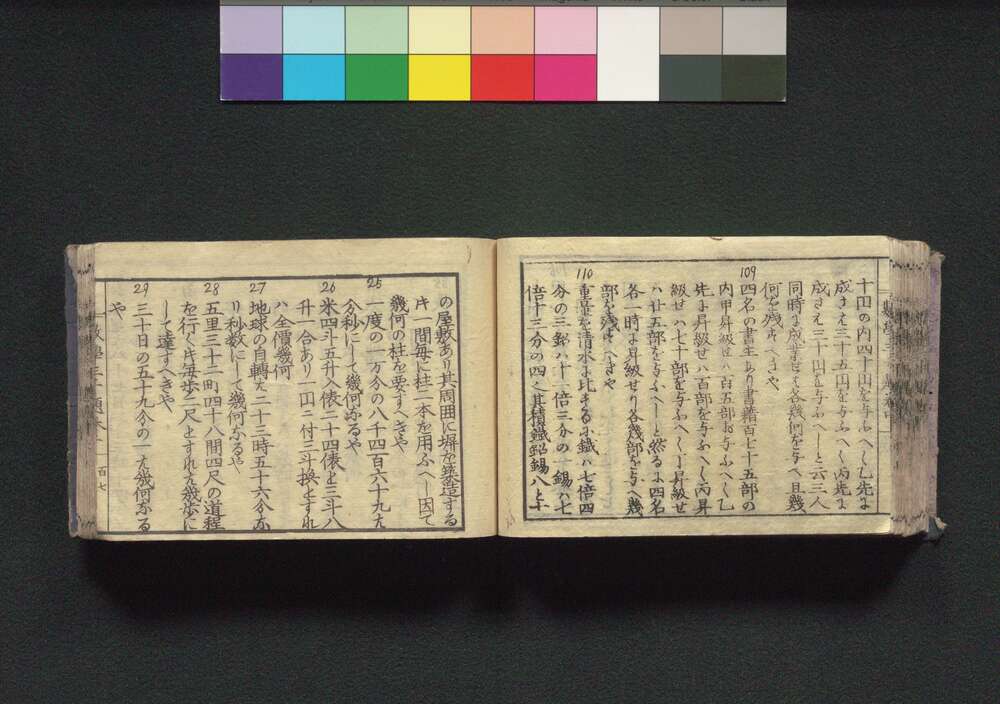 十円の内四十円を与ふへく乙先に
成さえ三十五円を与ふへく丙先に
成さえ三十円を与ふへしと云三人
同時に成業せは各幾何を与へ且幾
何を残すへきや
109
四名の書生あり書籍百七十五部の
内甲昇級せハ百五部を与ふへく乙
先に昇級せハ百部を与ふへく丙昇
級せハ七十部を与ふへく丁昇級せ
ハ廿五部を与ふへしと然るに四名
各一時に昇級せり各幾部を与へ幾
部を残すへきや
110
重量を清水に比するに鐵ハ七倍四
分の三鉛ハ十一倍三分の一錫ハ七
倍十三分の四く其積鐵鉛錫八と十
の屋敷あり其周囲に塀を築造する
キ一間毎に柱二本を用ふへし因て
幾何の柱を要すへきや
25
一度の一万分の八千四百六十九た
分秒にして幾何なるや
26
米四斗五升入俵二十四俵と三斗八
升一合あり一円に付二斗換とすれ
ハ全價幾何
27
地球の自轉た二十三時五十六分な
り秒数にして幾何なるや
28
五里三十二町四十八間四尺の道程
を行くキ毎歩二尺とすれた幾歩に
して達すへきや
29
三十日の五十九分の一た幾何なる
や
百七